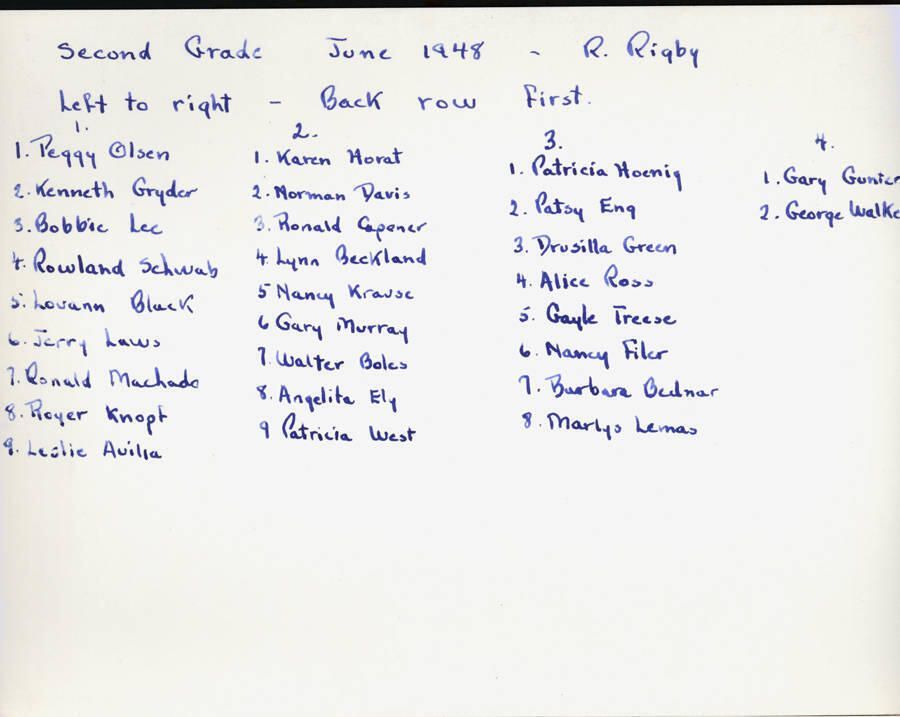 Second Grade June 1948 - R. Rigby
Left to right - Back row First.
1.
1. Peggy Olsen
2. Kenneth Gryder
3. Bobbie Lee
4. Rowland Schwab
5. Louann Black
6. Jerry Laws
7. Ronald Machado
8. Roger Knopf
9. Leslie Avilla
2.
1. Karen Horat
2. Norman Davis
3. Ronald Capener
4. Lynn Beckland
5 Nancy Krause
6 Gary Murray
7. Walter Boles
8. Angelita Ely
9 Patricia West
3.
1. Patricia Hoenig
2. Patsy Eng
3. Drusilla Green
4. Alice Ross
5. Gayle Treese
6. Nancy Filer
7. Barbara Bednar
8. Marlys Lemas
4.
1. Gary Gunter
2. George Walke